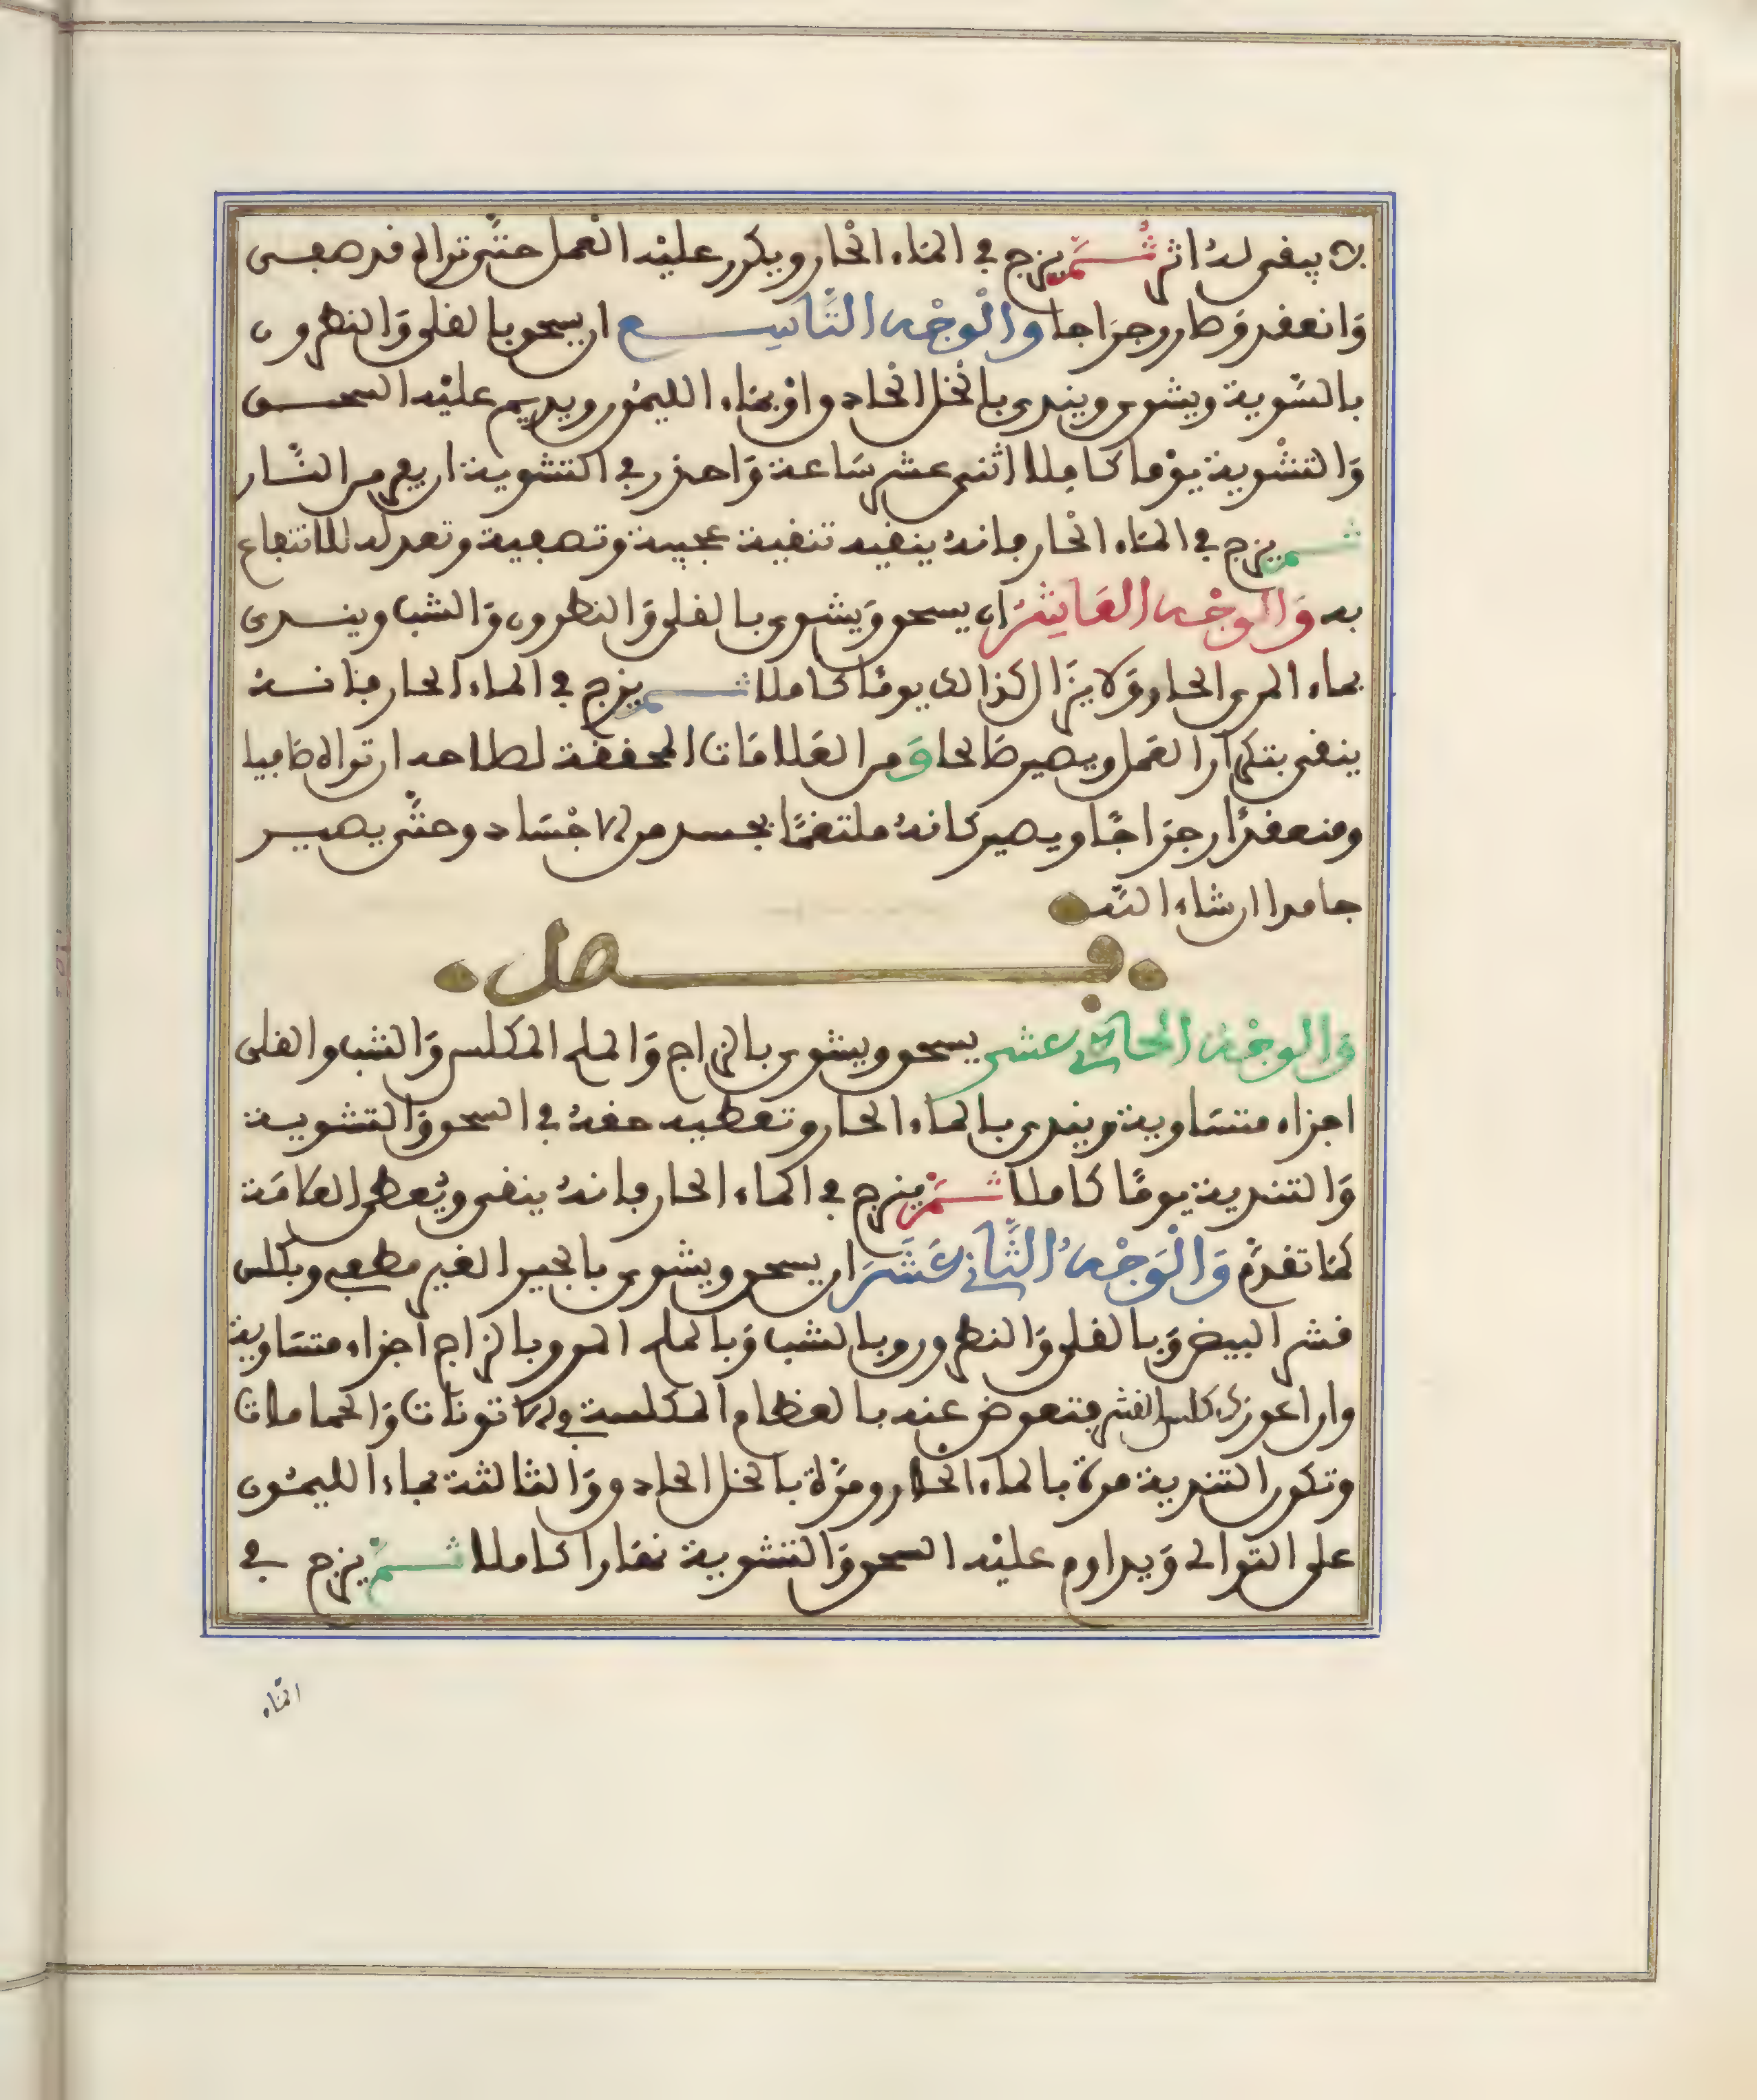 لا يبقى لهُ اثر ثُمَّ يزج في المَاء الحْار ويكرر عليْه العْمل حتَّى تراه قد صفى
وَانعقد وَصار رجرَاجا والْوجْه التَّاسِع ان يسحق بالقلي وَالنطرون
بالسَّوية ويشوى ويندى بالْخل الْحاد واوْ بمَاء الليمُون ويديم عليْه السحق
وَالتشْوية يوْما كامِلا اثنى عشر سَاعة وَاحذر في التشوية ان يحمى من النَّار
ثم يزج في المَاء الحْار فانهُ ينقيه تنقية عجيبة وتصفية وتعدله للانتفاع
به وَالْوجْه العَاشِرُ ان يسحق وَيشوى بالقلي وَالنطرون وَالشب ويندى
بماء المرى الحار وَلا يزَال كذالك يومًا كاملا ثم يزج في الماء الحار فانهُ
ينقى بتكرار العَمل ويصير صَالحا وَمن العَلامَات المحققة لصلاحه ان تراه صَافيا
ومنعقدًا رجرَاجًا ويصير كانهُ ملتغمًا بجسد من الاجْسَاد وحتَّى يصير
جامدا ان شاء اللَّه
فصل
وَالوجْه الحادي عشر يسحق ويشوى بالزاج وَالملح المكلس وَالشب والقلى
اجزاء متسَاوية ويندى بالماء الحار وتعطيه حقهُ في السحق وَالتشوية
وَالتندية يومًا كاملا ثُمَّ يزج في الماء الحار فانهُ ينقى ويُعطى العلامَة
كمَا تقدَّم وَالْوَجْهُ الثَّانِي عَشَرَ ان يسحق ويشوى بالجير الغير مطفي وبكلس
قشر البيض وَبالقلى وَالنطرون وبالشب وَبالملح المر وبالزاج أجزاء متسَاوية
وان اعوزك كلس القشر فتعوض عنه بالعظام المكلسة في الاتونات وَالحمامات
وتكون التندية مرة بالماء الحار ومرَّة بالخل الحاد ووَالثالثة بماء الليمُون
على التوالى وَيداوم عليْه السحق وَالتشوية نهَارا كاملا ثمَّ يزج في
المَاء